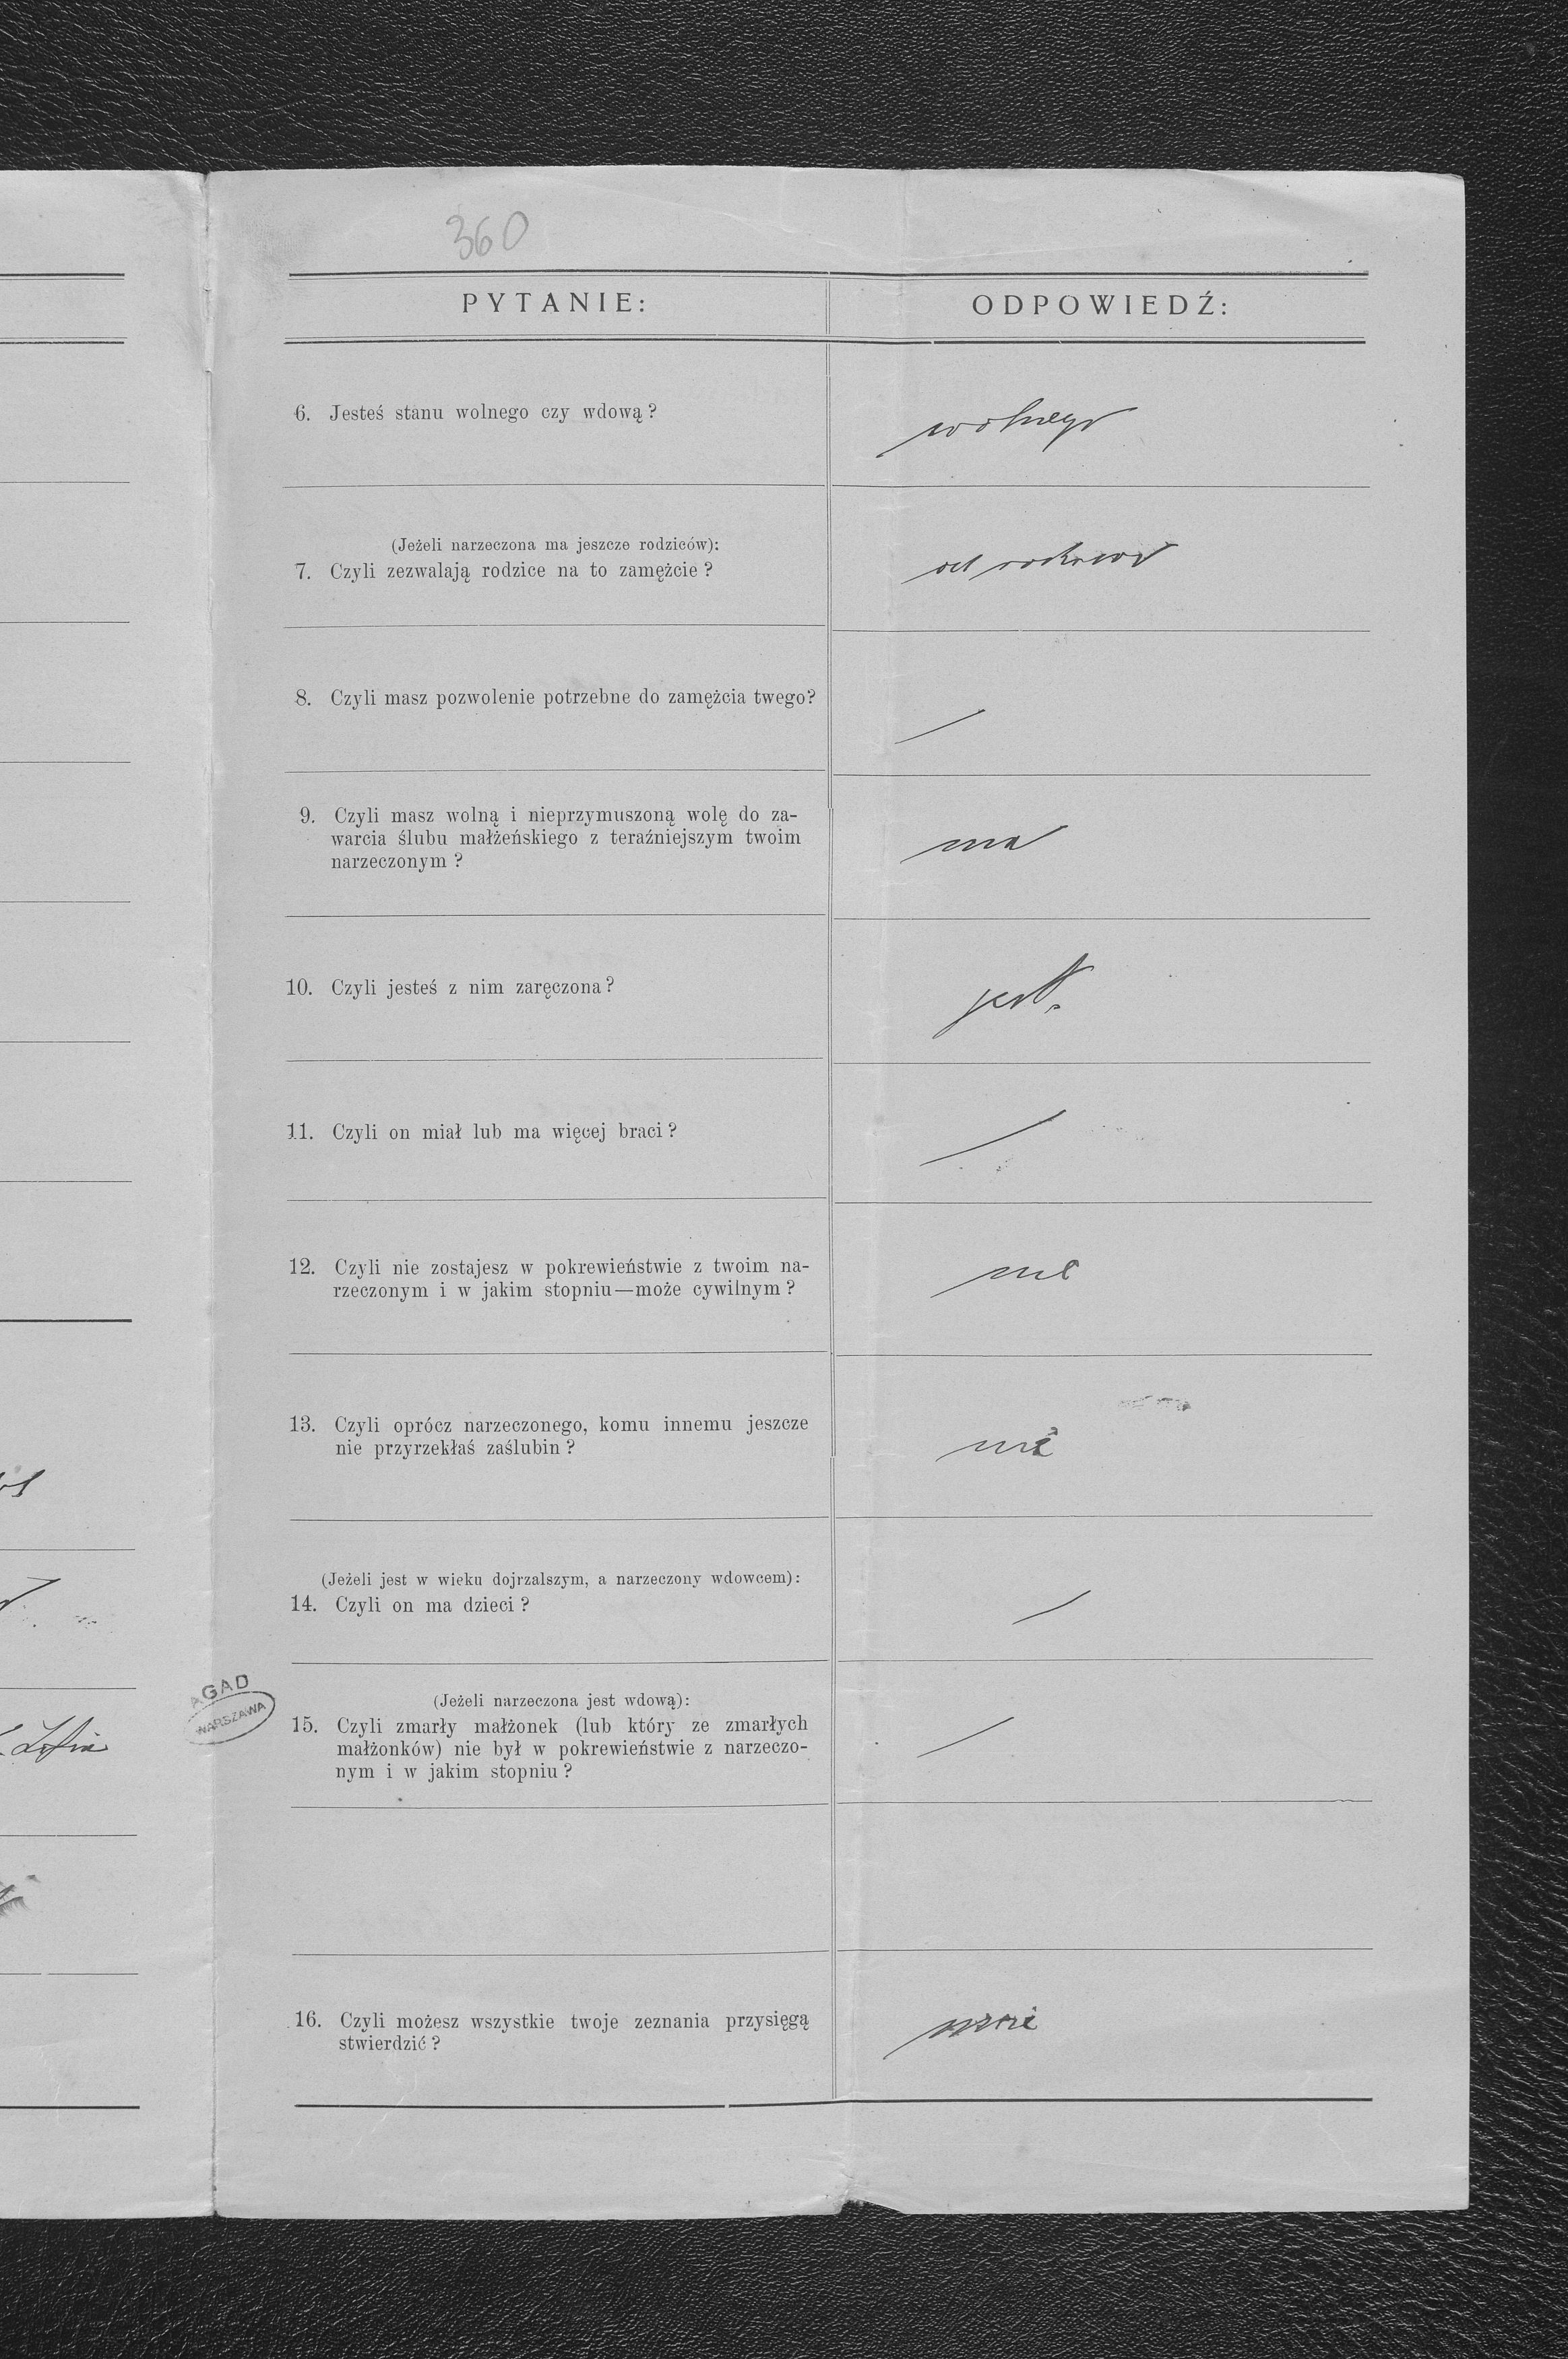 360
PYTANIE: ODPOWIEDŹ:
6. Jesteś stanu wolnego czy wdową?
wolnego
(Jeżeli narzeczona ma jeszcze rodziców):
7. Czyli zezwalają rodzice na to zamężcie?
8. Czyli masz pozwolenie potrzebne do zamężcia twego?
9. Czyli masz wolną i nieprzymuszoną wolę do za-
warcia ślubu małżeńskiego z teraźniejszym twoim
narzeczonym?
ma
10. Czyli jesteś z nim zaręczona?
jest
11. Czyli on miał lub ma więcej braci?
12. Czyli nie zostajesz w pokrewieństwie z twoim na-
rzeczonym i w jakim stopniu—może cywilnym?
nie
13. Czyli oprócz narzeczonego, komu innemu jeszcze
nie przyrzekłaś zaślubin?
nie
(Jeżeli jest w wieku dojrzalszym, a narzeczony wdowcem):
14. Czyli on ma dzieci?
(Jeżeli narzeczona jest wdową):
15. Czyli zmarły małżonek (lub który ze zmarłych
małżonków) nie był w pokrewieństwie z narzeczo-
nym i w jakim stopniu?
16. Czyli możesz wszystkie twoje zeznania przysięgą
stwierdzić?
może
AGAD
WARSZAWA